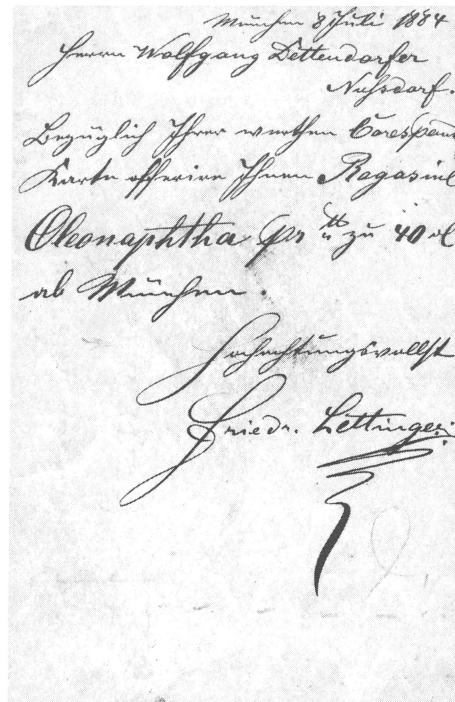 München 8 Juli 1884
Herrn Wolfgang Dettendorfer
Nußdorf.
Bezüglich Ihrer werthen Corespond
Karte offerire Ihnen Ragosine
Oleonaphtha pr ℔ zu 40 ₰
ab München.
Hochachtungsvollst
Friedr. Lettinger.